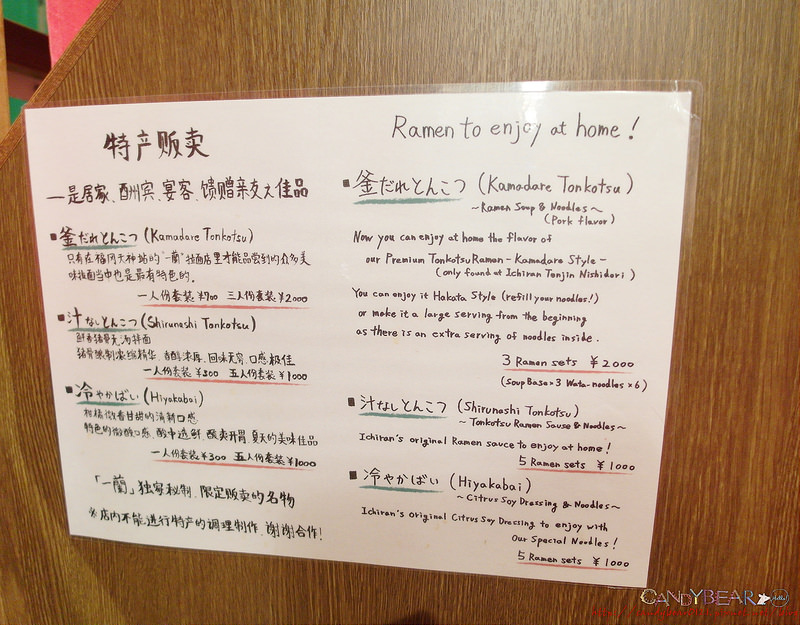 特产贩卖
—是居家、酬宾、宴客、馈赠亲友之佳品
■釜だれとんこつ (Kamadare Tonkotsu)
只有在福冈天神站的"一蘭"拉面店里才能品尝到的众多美
味拉面当中也是最有特色的。
一人份套装¥700 三人份套装¥2000
■汁なしとんこつ (Shirunashi Tonkotsu)
鲜香猪骨无汤拌面
猪骨熬制浓缩精华、香醇浓厚、回味无穷、口感极佳
一人份套装¥300 五人份套装¥1000
■冷やかばい (Hiyakabai)
柑橘微香甘甜的清新口感
特色的微酸口感、酸中透鲜、酸爽开胃、夏天的美味佳品
一人份套装¥300 五人份套装¥1000
「一蘭」独家秘制、限定贩卖的名物
※店内不能进行特产的调理制作、谢谢合作!
Ramen to enjoy at home!
■釜だれとんこつ (Kamadare Tonkotsu)
~Ramen Soup & Noodles~
(Pork flavor)
Now you can enjoy at home the flavor of
our Premium Tonkotsu Ramen-Kamadare Style-
(only found at Ichiran Tenjin Nishidori)
You can enjoy it Hakata Style (refill your noodles!)
or make it a large serving from the beginning
as there is an extra serving of noodles inside.
3 Ramen sets ¥2000
(Soup Base×3 Wata-noodles×6)
■汁なしとんこつ (Shirunashi Tonkotsu)
~Tonkotsu Ramen Sause & Noodles~
Ichiran's original Ramen sauce to enjoy at home!
5 Ramen sets ¥1000
■冷やかばい (Hiyakabai)
~Citrus Soy Dressing & Noodles~
Ichiran's Original Citrus Soy Dressing to enjoy with
Our Special Noodles!
5 Ramen sets ¥1000
CANDYBEAR